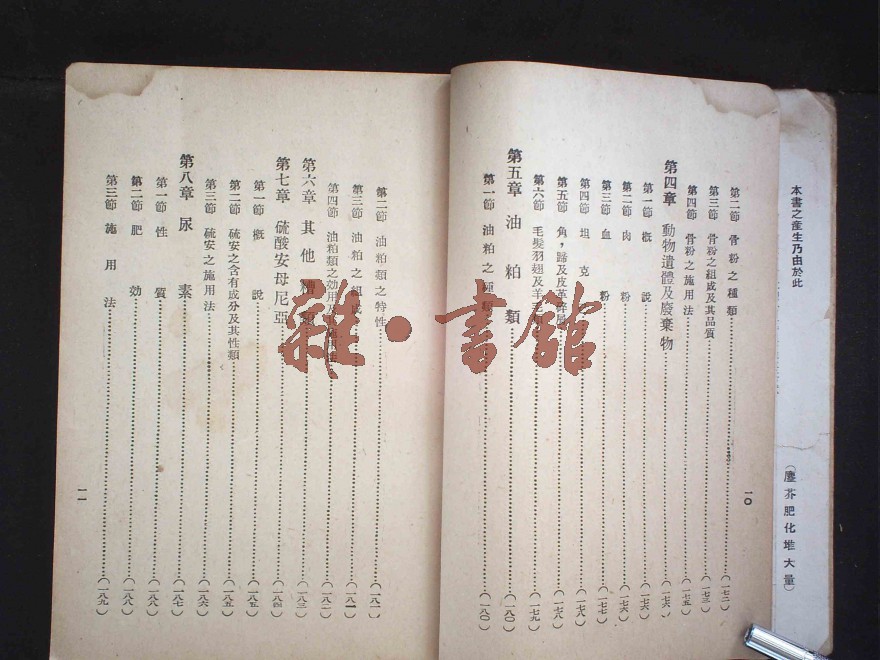 本書之產生乃由於此
（塵芥肥化堆大量）
第二節 骨粉之種類…（一七二）
第三節 骨粉之組成及其品質…（一七三）
第四節 骨粉之施用法…（一七五）
第四章 動物遺體及廢棄物…（一七六）
第一節 概說…（一七六）
第二節 肉粉…（一七六）
第三節 血粉…（一七七）
第四節 坦克…（一七八）
第五節 角，蹄及皮革碎屑…（一七八）
第六節 毛髮羽翅及羊毛…（一七九）
第五章 油粕類…（一八〇）
第一節 油粕之種類…（一八〇）
一〇
第二節 油粕類之特性…（一八一）
第三節 油粕之組成…（一八一）
第四節 油粕類之効用及…（一八二）
第六章 其他糟…（一八三）
第七章 硫酸安母尼亞…（一八四）
第一節 概說…（一八五）
第二節 硫安之含有成分及其性類…（一八五）
第三節 硫安之施用法…（一八六）
第八章 尿素…（一八七）
第一節 性質…（一八八）
第二節 肥効…（一八八）
第三節 施用法…（一八九）
一一
雜·書館